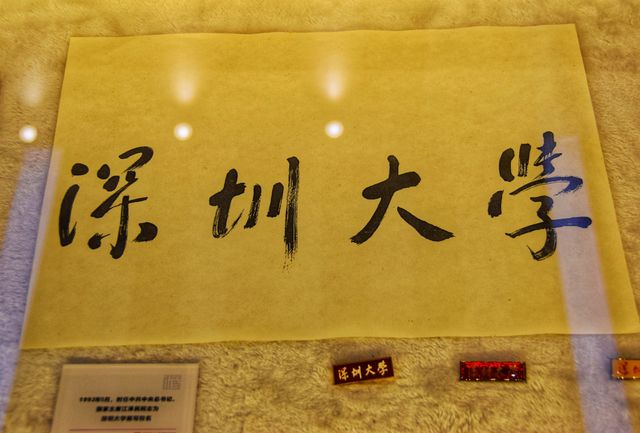 深圳大學
1992年5月，时任中共中央总书记、
国家主席江泽民同志为
深圳大学题写校名
深圳大學